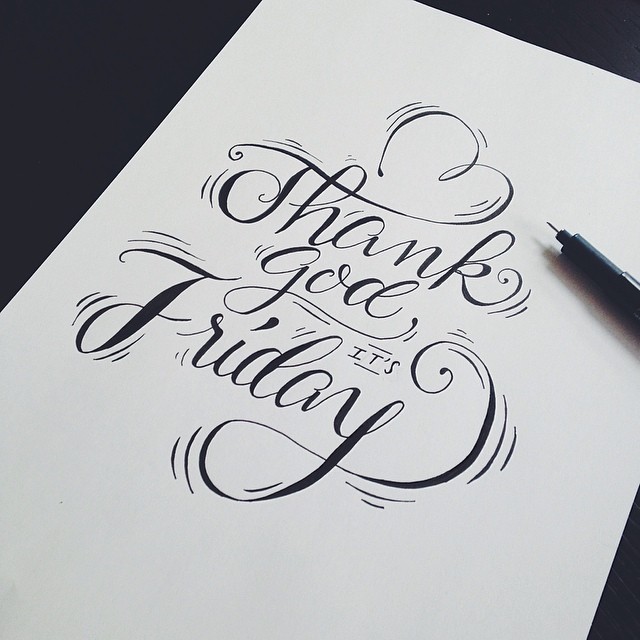 Thank
god,
IT'S
Friday